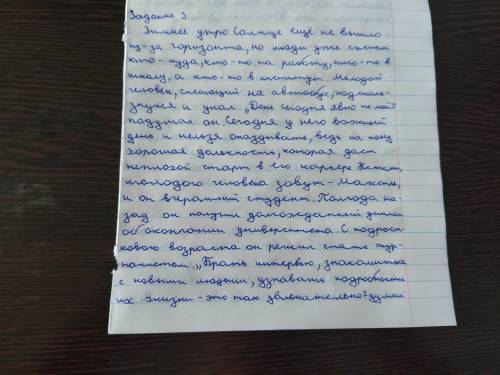 Задание 3
Зимнее утро Солнце ещё не вышло
из-за горизонта, но люди уже спешат
кто-куда, кто-то на работу, кто-то в
школу, а кто-то в институт. Молодой
человек, спешащий на автобус, подсколь-
знулся и упал „День сегодня явно не мой"
подумал он. Сегодня у него важный
день и нельзя опаздывать, ведь на кону
хорошая должность, которая даст
неплохой старт в его карьере Кстати,
молодого человека зовут-Максим,
и он вчерашний студент. Полгода на-
зад он получил долгожданный диплом
об окончании университета. С подрост-
кового возраста он решил стать жур-
налистом. „Брать интервью, знакомиться
с новыми людьми, узнавать подробности
их жизни-это так увлекательно" думал